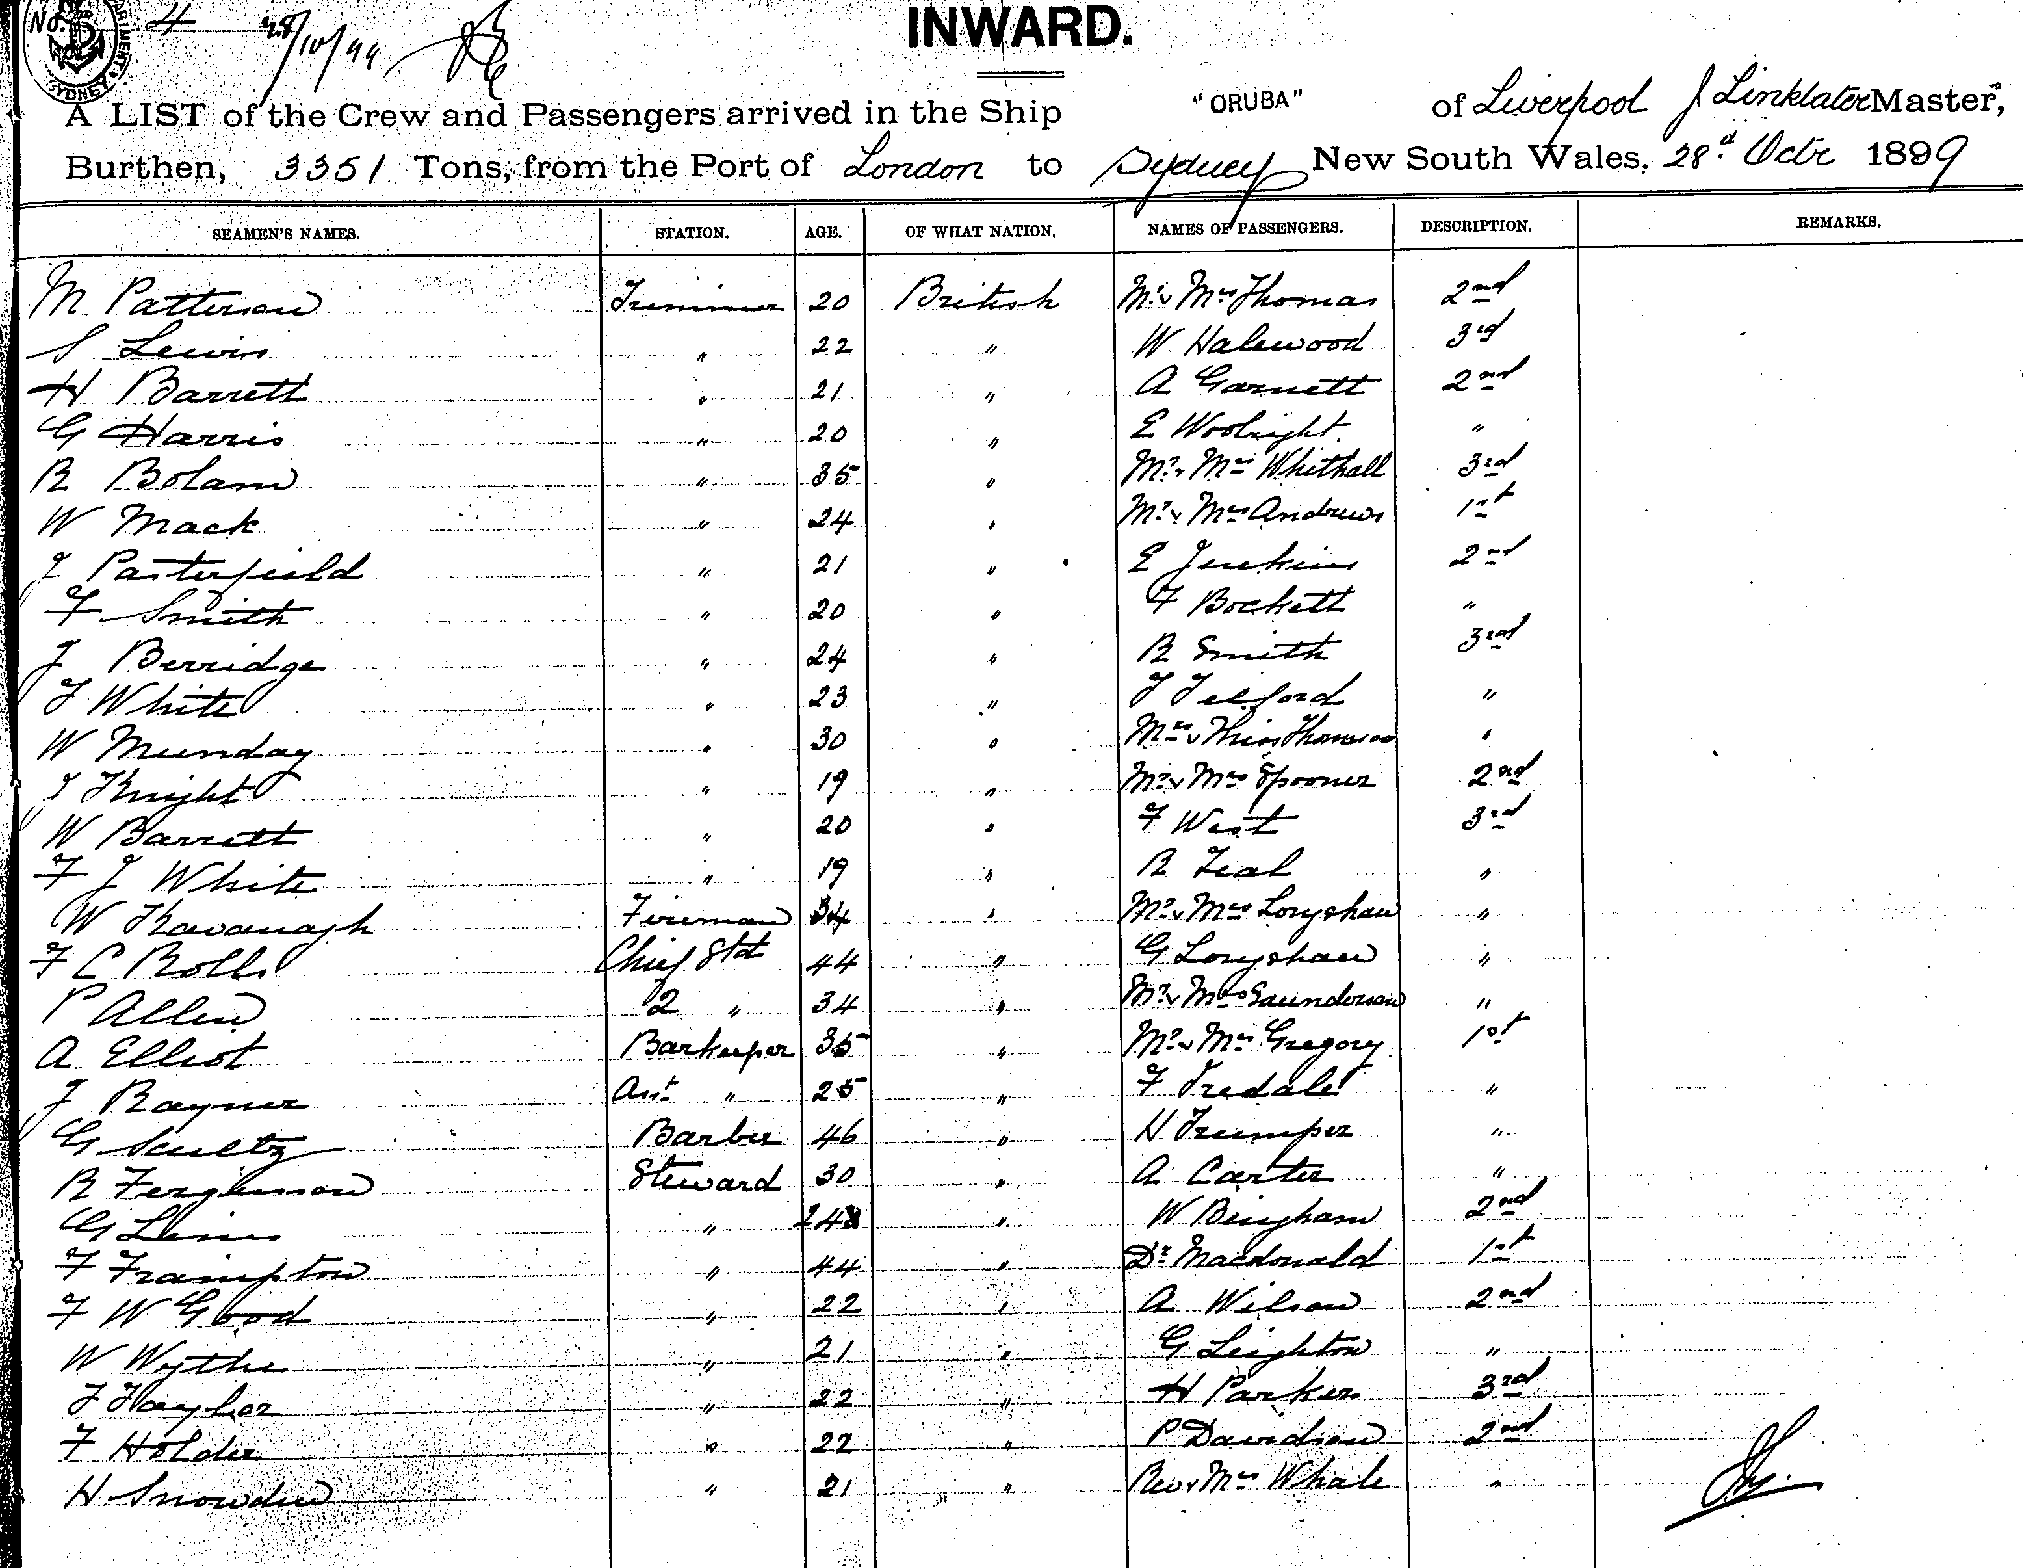 No. 4 28/10/99
SYDNEY
INWARD.
A LIST of the Crew and Passengers arrived in the Ship "ORUBA" of Liverpool J Linklater Master,
Burthen, 3351 Tons, from the Port of London to Sydney New South Wales, 28th Octr 1899
SEAMEN'S NAMES. STATION. AGE. OF WHAT NATION. NAMES OF PASSENGERS. DESCRIPTION. REMARKS.
M Patterson Trimmer 20 British Mr & Mrs Thomas 2nd
S Lewis " 22 " W Halewood 3rd
H Barrett " 21 " A Garnett 2nd
G Harris " 20 " E Woolright "
R Bolam " 35 " Mr & Mrs Whithall 3rd
W Mack " 24 " Mr & Mrs Andrews 1st
J Pasterfield " 21 " E Jenkins 2nd
F Smith " 20 " F Bockett "
J Berridge " 24 " R Smith 3rd
F White " 23 " J Telford "
W Munday " 30 " Mrs & Miss Thomson "
J Knight " 19 " Mr & Mrs Spooner 2nd
W Barrett " 20 " F West 3rd
F J White " 19 " R Teal "
W Kavanagh Fireman 34 " Mr & Mrs Longshaw "
F C Rolls Chief Std 44 " G Longshaw "
P Allen 2 " 34 " Mr & Mrs Saunderson "
A Elliot Barkeeper 35 " Mr & Mrs Gregory 1st
J Rayner Asst " 25 " F Iredale "
G Scultz Barber 46 " H Trumper "
R Fergusson Steward 30 " A Carter "
G " " W Bingham 2nd
F Frampton " 44 " Dr Macdonald 1st
F W Good " 22 " A Wilson 2nd
W Wythe " 21 " G Leighton "
J Haylor " 22 " H Parker 3rd
F Holder " 22 " P Davidson 2nd
H Snowden " 21 " Rev & Mrs Whale "